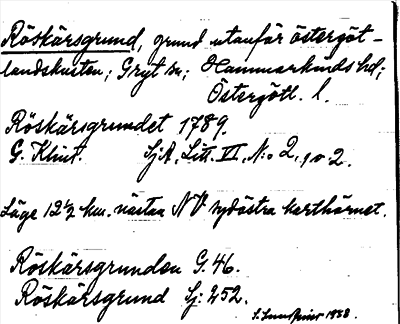 Röskärsgrund, grund utanför östergöt-
landskusten; Gryt sn; Hammarkinds hd;
Östergötl. l.
Röskärsgrundet 1789.
G. Klint. SjA, Litt. VI, N:o 2, 9 o 2.
Läge 12 1/2 km. nästan NV sydöstra karthörnet.
Röskärsgrunden G. 46.
Röskärsgrund Sj: 252.
1938